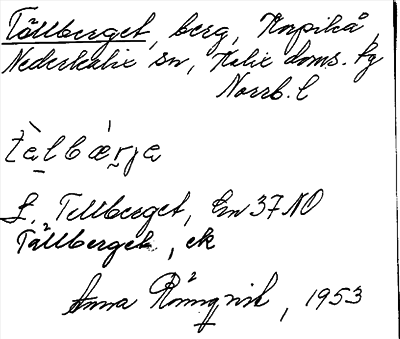 Tållberget, berg, Korpikå,
Nederkalix sn, Kalix doms. tg
Norrb. l
tàlbǽrja
L. Tellberget, Gn 37 NO
Tållberget, ek
Anna Rönnqvist, 1953